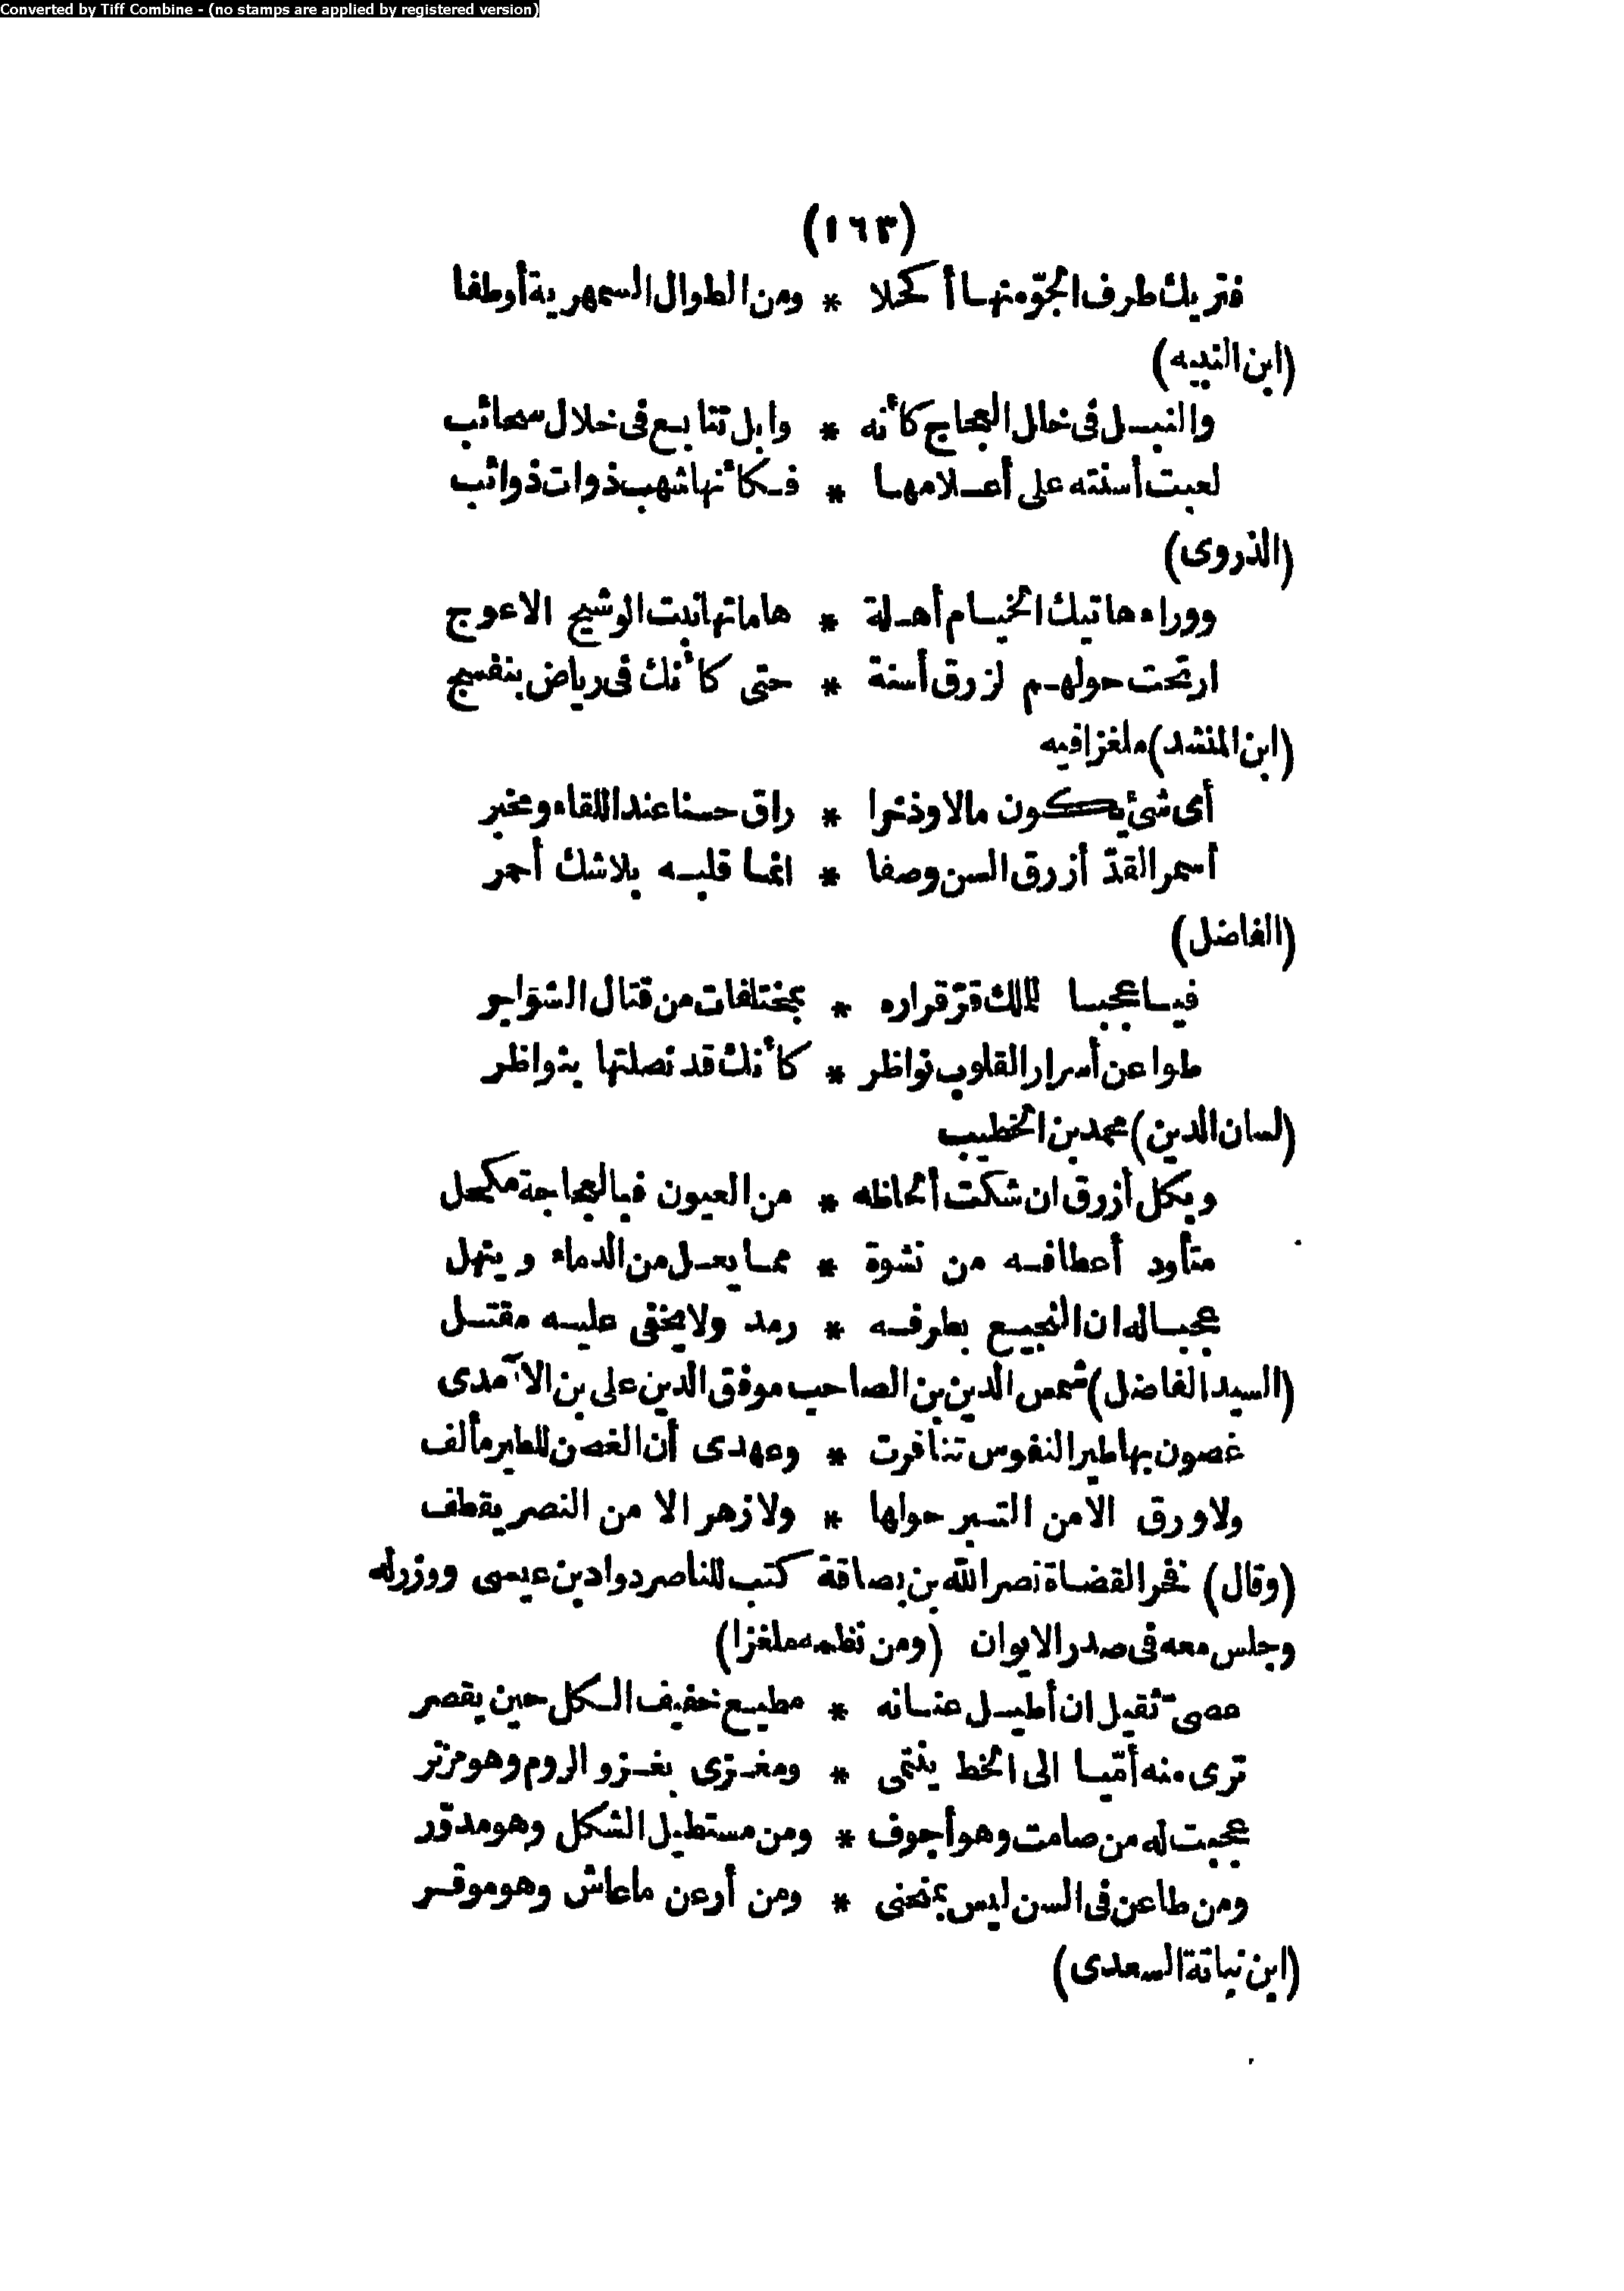 Converted by Tiff Combine - (no stamps are applied by registered version)
(١٦٣)
فتريك طرف الجوّ منها أكحلا * ومن الطوال السمهرية أوطفا
(ابن النبيه)
والنبل فى خلل العجاج كأنه * وابل تتابع فى خلال سحائب
لعبت أسنته على أعلامها * فكأنها شهب ذوات ذوائب
(الذروى)
ووراء هاتيك الخيام أهلة * هاماتها نبت الوشيج الاعوج
ارتحت حولهم لزرق أسنة * حتى كأنك فى رياض بنفسج
(ابن المنشد) ملغزا فيه
أى شئ يكون مالا وذخرا * راق حسنا عند اللقاء ومخبر
أسمر القدّ أزرق السن وصفا * انما قلبه بلا شك أحمر
(الفاضل)
فيا عجبا للملك قرّ قراره * بمختلفات من قتال الشواجر
طوا عن أسرار القلوب نواظر * كأنك قد نصلتها بنواظر
(لسان الدين) محمد بن الخطيب
وبكل أزرق ان شكت ألحاظه * من العيون فبالعجاجة مكحل
متأود أعطافه من نشوة * مما يعل من الدماء وينهل
عجبا له ان النجيع بطرفه * رمد ولا يخفى عليه مقتل
(السيد الفاضل) شمس الدين بن الصاحب موفق الدين على بن الآمدى
غصون بها طير النفوس تنافرت * وعهدى أن الغصن للطير مألف
ولا ورق الا من التبر حولها * ولا زهر الا من النصر يقطف
(وقال) فخر القضاة نصر الله بن بصاقة كتب للناصر دواد بن عيسى ووزر له
وجلس معه فى صدر الايوان (ومن نظمه ملغزا)
عصىّ ثقيل ان أطيل عنانه * مطيع خفيف الكل حين يقصر
ترى منه أمّيا الى الخط ينتمى * ومغزى بغزو الروم وهو مزنر
عجبت له من صامت وهو أجوف * ومن مستطيل الشكل وهو مدوّر
ومن طاعن فى السن ليس بمنحنى * ومن أرعن ما عاش وهو موقر
(ابن نباتة السعدى)